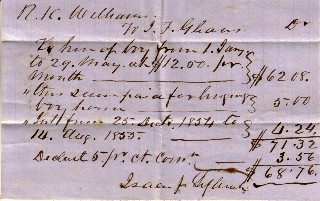 R. K. Williams.
To J. F. Ghaus Dr
To hire of boy from 1. Jany
to 29. May. at $12.00. per
month $62.08.
" this sum paid for bringing
boy home 5.00
" Int from 25. Dect. 1854 to
14. Aug. 1855. 4.24
$71.32
Deduct 5 pr. ct. Comn. 3.56
$68.76.
Isaac